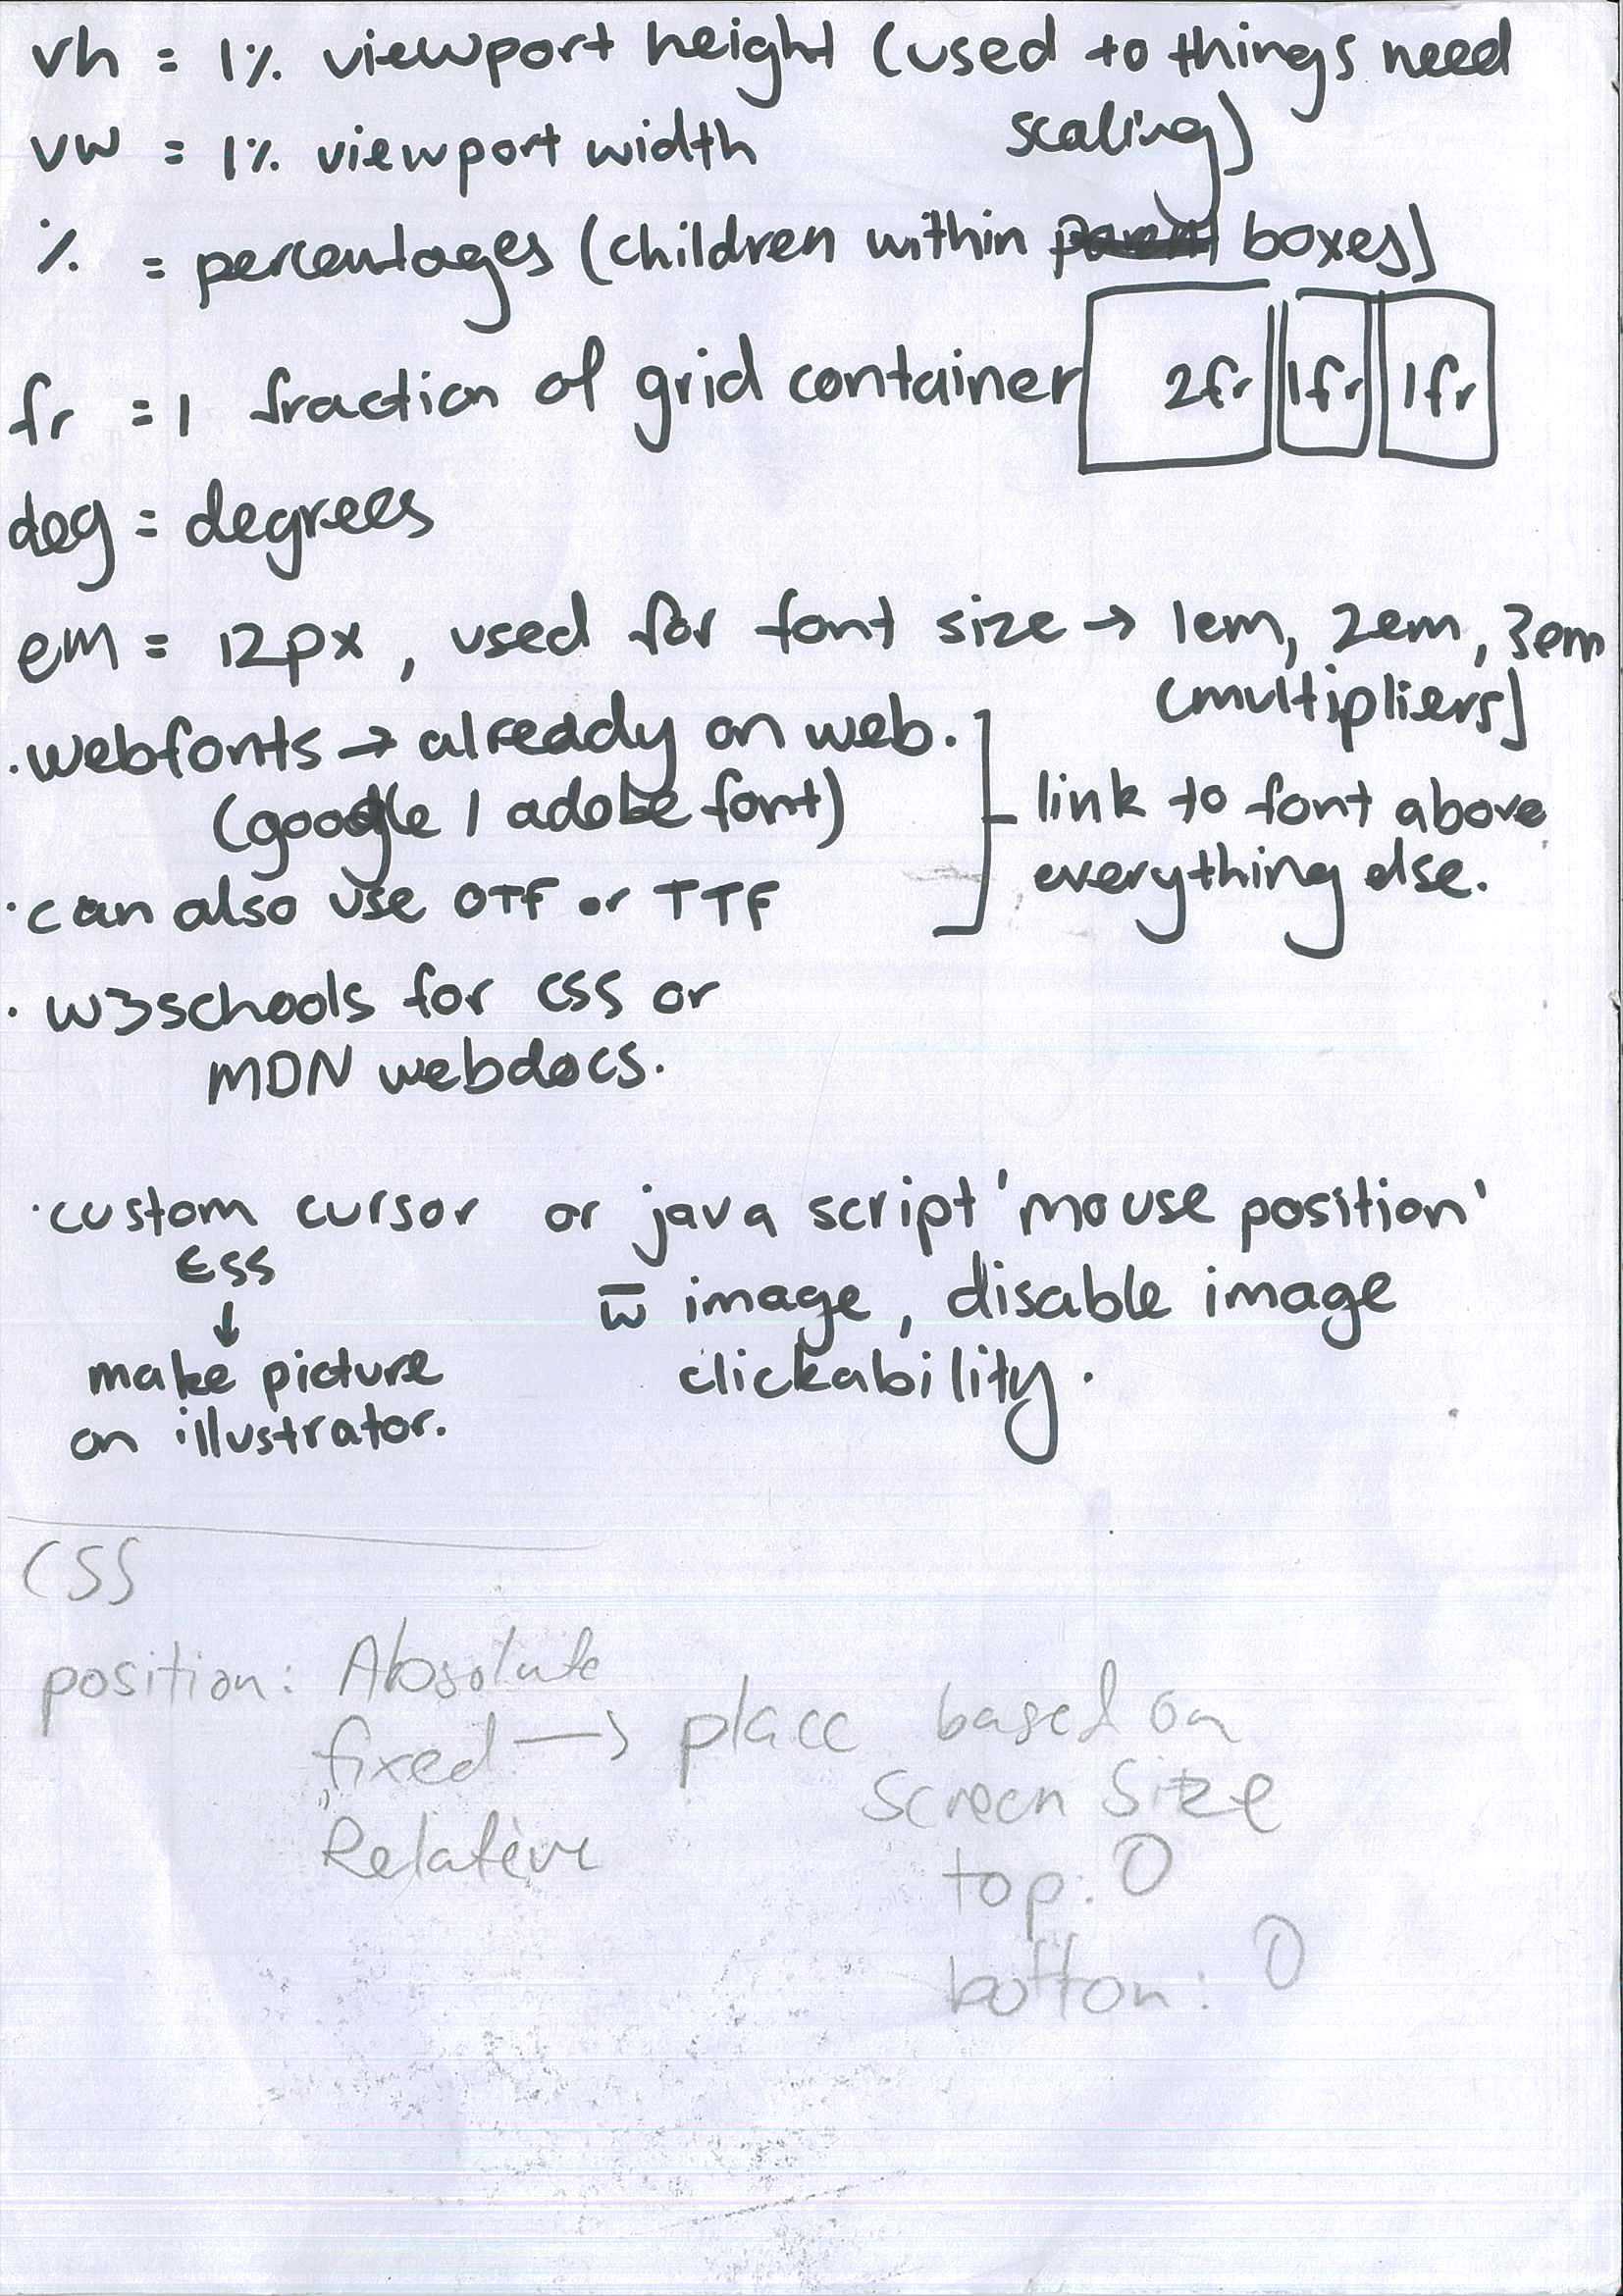 vh = 1% viewport height (used to things need
scaling)
vw = 1% viewport width
% = percentages (children within boxes)
fr = 1 fraction of grid container
2fr 1fr 1fr
deg = degrees
em = 12px, used for font size → 1em, 2em, 3em
(multipliers)
· webfonts → already on web.
(google / adobe font)
· can also use OTF or TTF
link to font above
everything else.
· w3schools for css or
MDN webdocs.
· custom cursor or java script 'mouse position'
css
↓
w̅ image, disable image
clickability.
make picture
on illustrator.
CSS
position: Absolute
fixed → place based on
screen size
Relative
top: 0
bottom: 0